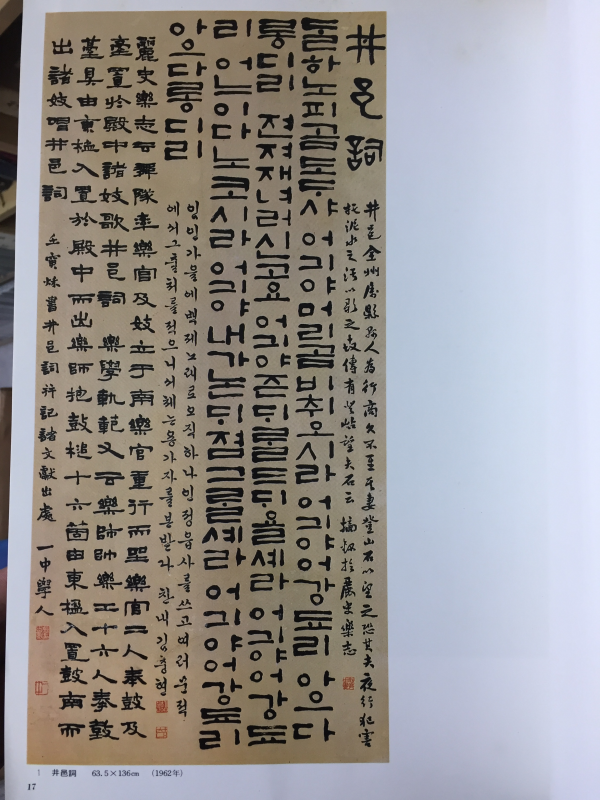 井邑詞
井邑全州屬縣縣人爲行商久不至其妻登山石以望之恐其夫夜行犯害
托泥水之汚以歌之世傳有登岾望夫石云 摘錄於麗史樂志
ᄃᆞᆯ하노피곰도ᄃᆞ샤 어긔야머리곰비추오시라 어긔야어강됴리 아으다
롱디리 젼져재녀러신고요 어긔야즌ᄃᆡᄅᆞᆯ드ᄃᆡ욜셰라 어긔야어강됴
리 어느이다노코시라 어긔야내가논ᄃᆡ졈그ᄅᆞᆯ셰라 어긔야어강됴리
아으다롱디리
임인가을에백제노래로오직하나인정읍사를쓰고여러문적
에서그출처를적으니서체는용가자를본받다 찬내김충현
麗史樂志云舞隊率樂官及妓立于南樂官重行而坐樂官二人奉鼓及
臺置於殿中諸妓歌井邑詞 樂學軌範又云樂師帥樂工十六人奉鼓
臺具由東楹入置於殿中而出樂師抱鼓槌十六箇由東楹入置鼓南而
出諸妓唱井邑詞 壬寅秋書井邑詞幷記諸文獻出處 一中學人
1 井邑詞 63.5×136cm (1962年)
17